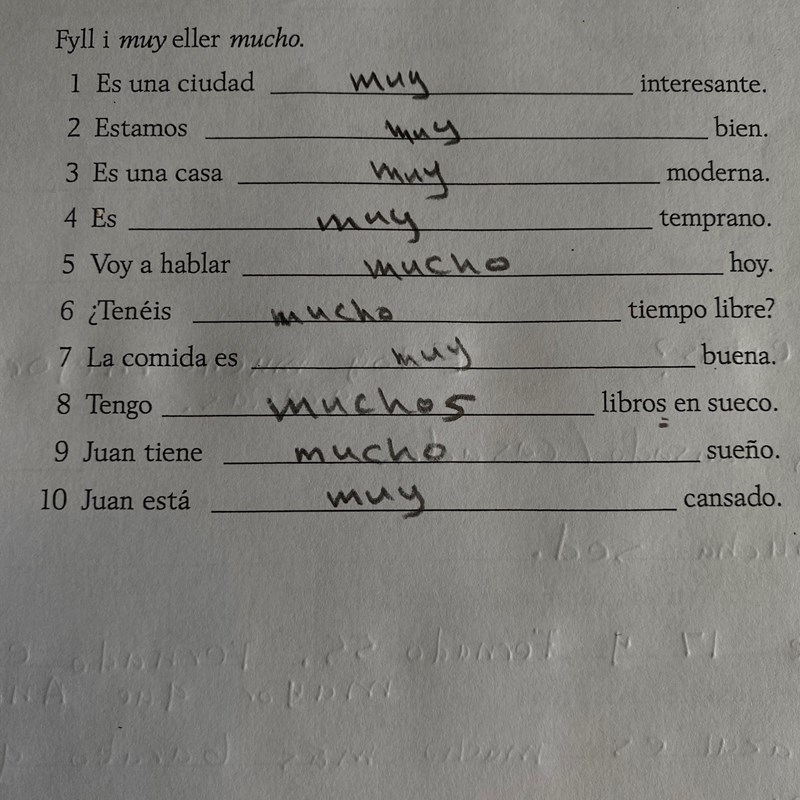 Fyll i muy eller mucho.
1 Es una ciudad muy interesante.
2 Estamos muy bien.
3 Es una casa muy moderna.
4 Es muy temprano.
5 Voy a hablar mucho hoy.
6 ¿Tenéis mucho tiempo libre?
7 La comida es muy buena.
8 Tengo muchos libros en sueco.
9 Juan tiene mucho sueño.
10 Juan está muy cansado.